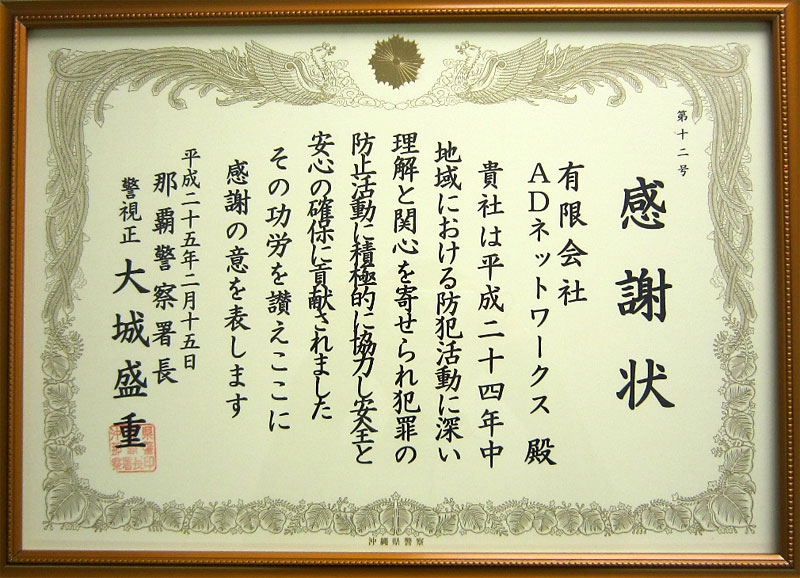 第十二号
感謝状
有限会社
ADネットワークス 殿
貴社は平成二十四年中
地域における防犯活動に深い
理解と関心を寄せられ犯罪の
防止活動に積極的に協力し安全と
安心の確保に貢献されました
その功労を讃えここに
感謝の意を表します
平成二十五年二月十五日
那覇警察署長
警視正 大城盛重
沖縄県警察